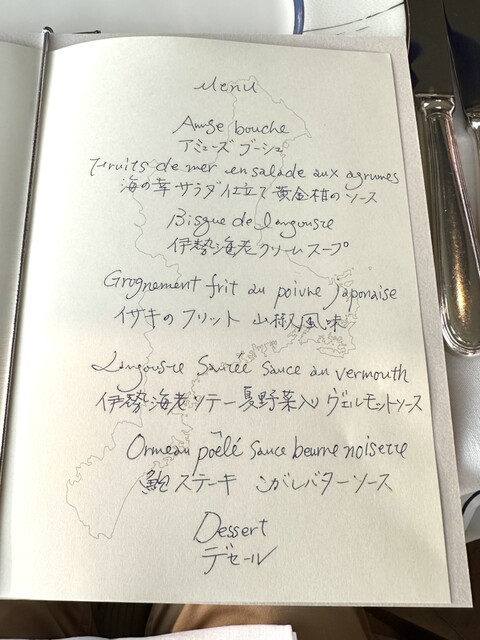 Menu
Amuse bouche
アミューズ ブーシュ
Fruits de mer en salade aux agrumes
海の幸 サラダ仕立て 黄金柑のソース
Bisque de langouste
伊勢海老クリームスープ
Grognement frit au poivre japonaise
イサキのフリット 山椒風味
Langouste Sautée Sauce au vermouth
伊勢海老ソテー 夏野菜入り ヴェルモットソース
Ormeau poêlé Sauce beurre noisette
鮑ステーキ こがしバターソース
Dessert
デセール